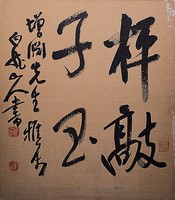 枰敲
子玉
增岡先生雅正
白龙山人書